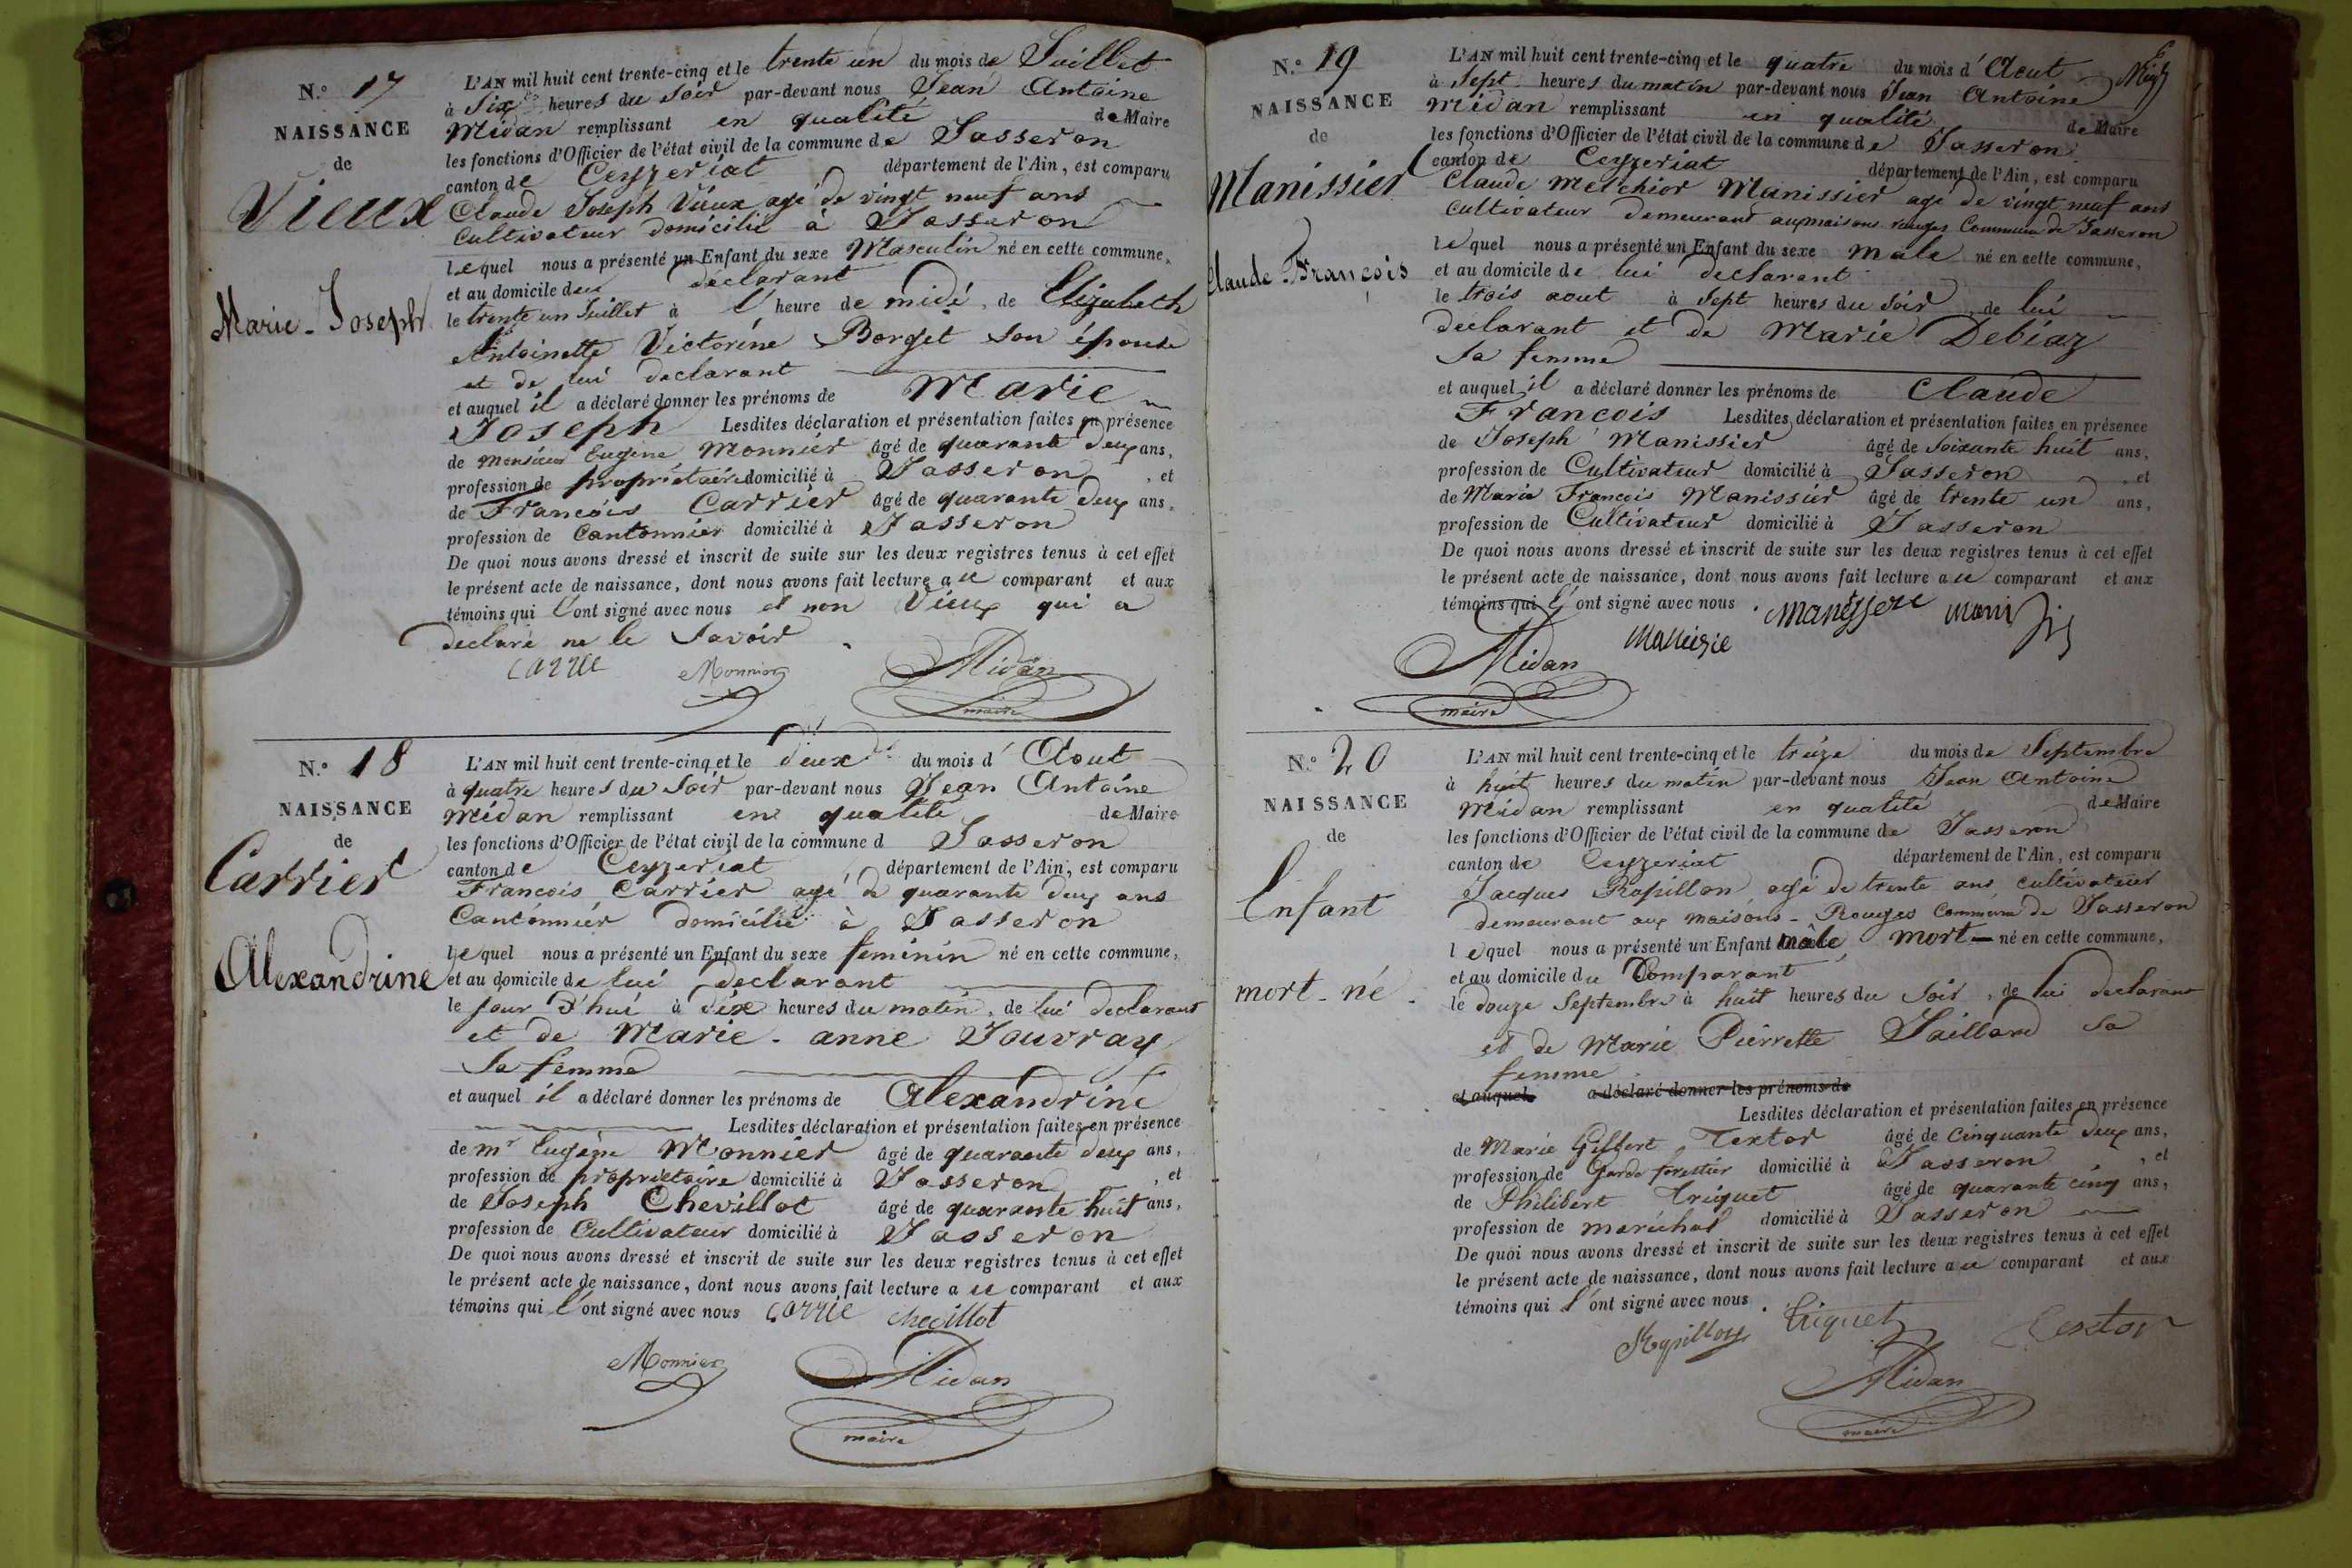 N.º 17
NAISSANCE
de
Vieux
Marie-Joseph
L'AN mil huit cent trente-cinq et le trente un du mois de Juillet
à Six heures du Soir par-devant nous Jean Antoine
Midan remplissant en qualité de Maire
les fonctions d'Officier de l'état civil de la commune de Jasseron
canton de Ceyzeriat département de l'Ain, est comparu
Claude Joseph Vieux agé de vingt neuf ans
Cultivateur domicilié à Jasseron
lequel nous a présenté un Enfant du sexe Masculin né en cette commune,
et au domicile du déclarant
le trente un Juillet à l'heure de midi, de Elizabeth
Antoinette Victorine Borget son épouse
et de lui declarant
et auquel il a déclaré donner les prénoms de Marie
Joseph Lesdites déclaration et présentation faites en présence
de Monsieur Eugene Monnier âgé de quarante deux ans,
profession de propriétaire domicilié à Jasseron, et
de Francois Carrier âgé de quarante deux ans,
profession de Cantonnier domicilié à Jasseron
De quoi nous avons dressé et inscrit de suite sur les deux registres tenus à cet effet
le présent acte de naissance, dont nous avons fait lecture au comparant et aux
témoins qui l'ont signé avec nous et non Vieux qui a
declaré ne le Savoir.
Carrie Monnier Midan
maire
N.º 18
NAISSANCE
de
Carrier
Alexandrine
L'AN mil huit cent trente-cinq et le deux du mois d'Aout
à quatre heures du Soir par-devant nous Jean Antoine
Midan remplissant en qualité de Maire
les fonctions d'Officier de l'état civil de la commune d Jasseron
canton de Ceyzeriat, département de l'Ain, est comparu
Francois Carrier agé de quarante deux ans
Cantonnier domicilié à Jasseron
lequel nous a présenté un Enfant du sexe feminin né en cette commune,
et au domicile de lui declarant
le jour d'hui à dix heures du matin, de lui declarant
et de Marie-anne Jouvray
Sa femme
et auquel il a déclaré donner les prénoms de Alexandrine
Lesdites déclaration et présentation faites en présence
de mr Eugène Monnier âgé de quarante deux ans,
profession de propriétaire domicilié à Jasseron, et
de Joseph Chevillot âgé de quarante huit ans,
profession de Cultivateur domicilié à Jasseron
De quoi nous avons dressé et inscrit de suite sur les deux registres tenus à cet effet
le présent acte de naissance, dont nous avons fait lecture au comparant et aux
témoins qui l'ont signé avec nous Carrie Chevillot
Monnier Midan
maire
6
N.º 19
NAISSANCE
de
Manissier
Claude-François
L'AN mil huit cent trente-cinq et le quatre du mois d'Aout
à Sept heures du matin par-devant nous Jean Antoine
Midan remplissant en qualité de Maire
les fonctions d'Officier de l'état civil de la commune de Jasseron
canton de Ceyzeriat département de l'Ain, est comparu
Claude Melchior Manissier agé de vingt neuf ans
Cultivateur demeurant aux maisons rouges Commune de Jasseron
lequel nous a présenté un Enfant du sexe male né en cette commune,
et au domicile de lui declarant
le trois aout à Sept heures du Soir, de lui
declarant et de Marie Debiaz
Sa femme
et auquel il a déclaré donner les prénoms de Claude
Francois Lesdites déclaration et présentation faites en présence
de Joseph Manissier âgé de Soixante huit ans,
profession de Cultivateur domicilié à Jasseron, et
de Marie Francois Manissier âgé de trente un ans,
profession de Cultivateur domicilié à Jasseron
De quoi nous avons dressé et inscrit de suite sur les deux registres tenus à cet effet
le présent acte de naissance, dont nous avons fait lecture au comparant et aux
témoins qui l'ont signé avec nous.
Midan
maire
N.º 20
NAISSANCE
de
Enfant
mort-né.
L'AN mil huit cent trente-cinq et le treize du mois de Septembre
à huit heures du matin par-devant nous Jean Antoine
Midan remplissant en qualité de Maire
les fonctions d'Officier de l'état civil de la commune de Jasseron
canton de Ceyzeriat département de l'Ain, est comparu
Jacques Rapillon agé de trente ans cultivateur
demeurant aux maisons-Rouges Commune de Jasseron
lequel nous a présenté un Enfant mâle mort né en cette commune,
et au domicile du Comparant
le douze Septembre à huit heures du Soir, de lui declarant
et de Marie Pierrette Jaillard Sa
femme
et auquel a déclaré donner les prénoms de
Lesdites déclaration et présentation faites en présence
de Marie Gilbert Textor âgé de Cinquante deux ans,
profession de Garde forestier domicilié à Jasseron, et
de Philibert Triquet âgé de quarante cinq ans,
profession de maréchal domicilié à Jasseron
De quoi nous avons dressé et inscrit de suite sur les deux registres tenus à cet effet
le présent acte de naissance, dont nous avons fait lecture au comparant et aux
témoins qui l'ont signé avec nous.
Rapillon Triquet Textor
Midan
maire